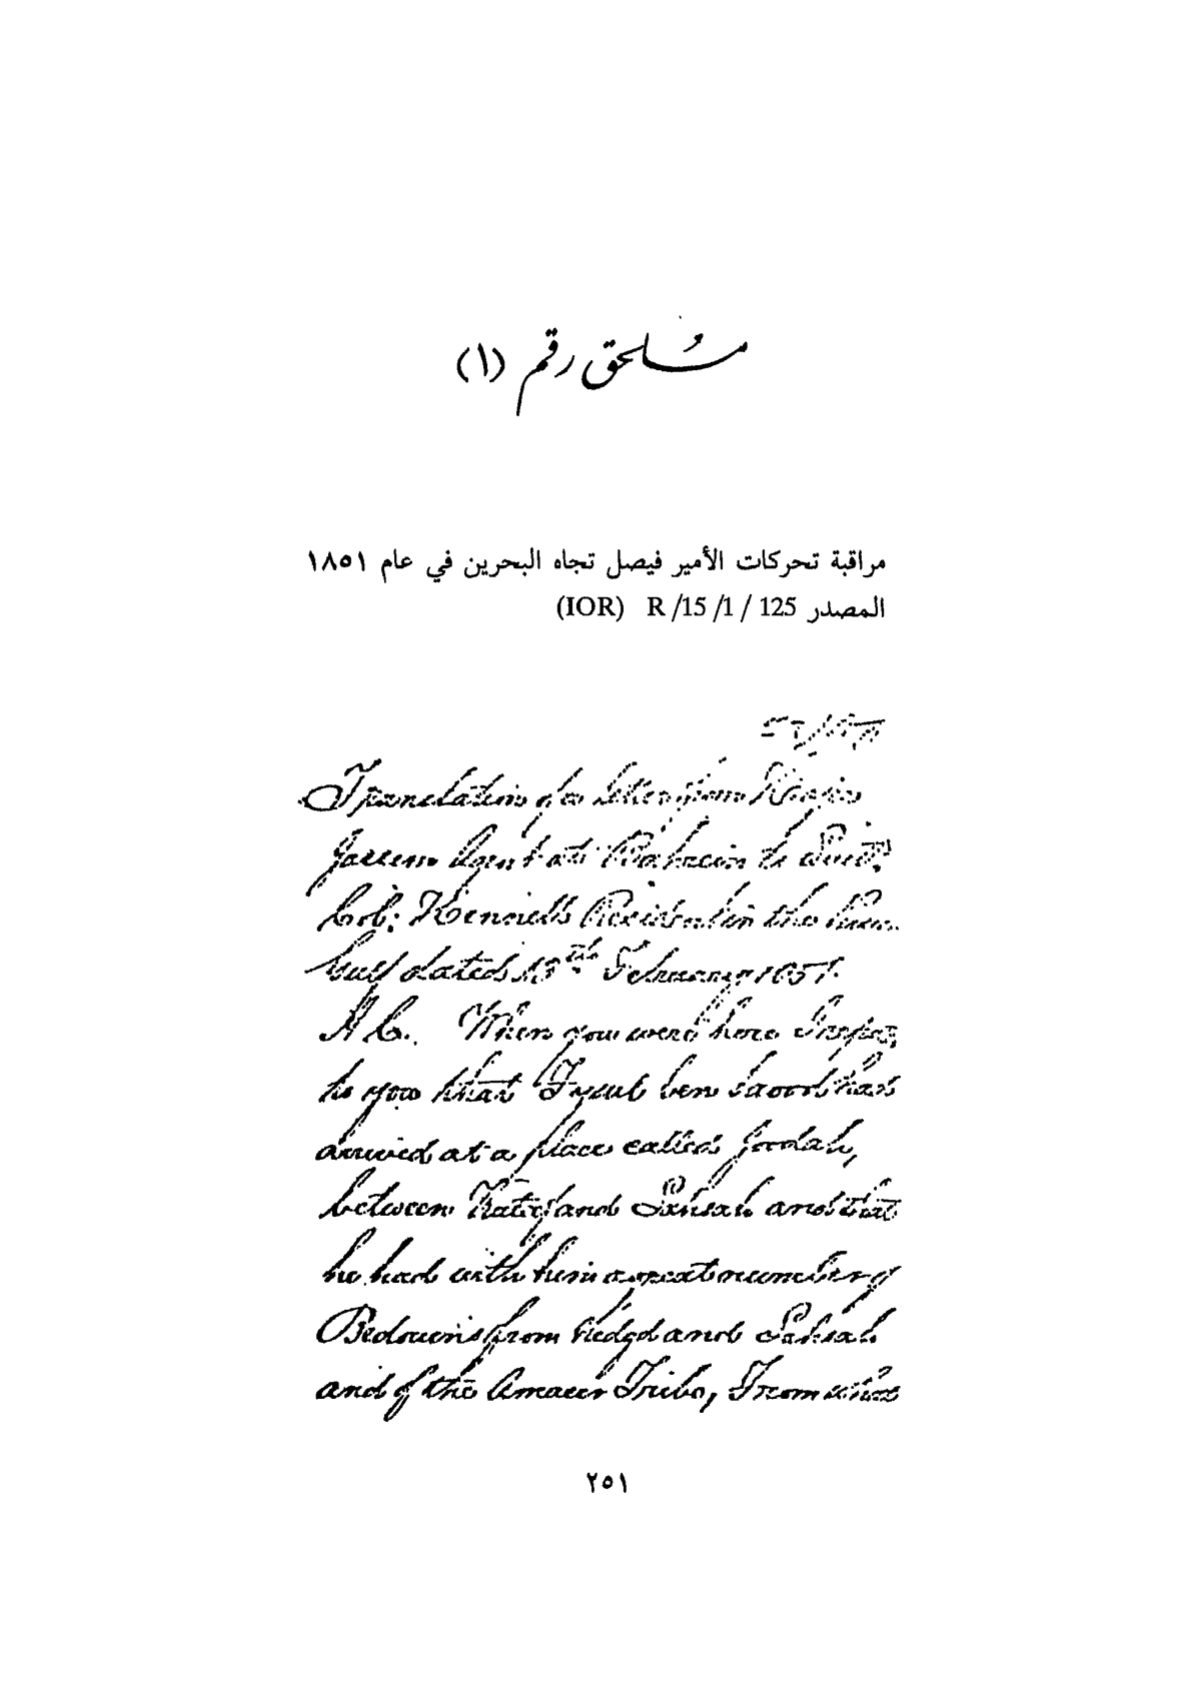 مُلحق رقم (١)
مراقبة تحركات الأمير فيصل تجاه البحرين في عام ١٨٥١
المصدر R /15 /1 / 125 (IOR)
Translation of a letter from
Jassem Agent at Bahrein to Lieut.
Col: Hennell Resident in the
Gulf dated 13th February 1851.
A C. When you were here
to you that Fysul ben Saood has
arrived at a place called Joodah,
between Katif and Lahsah and that
he had with him a great number of
Bedouins from Nedgd and Lahsah
and of the Amaeer Tribe, From
٢٥١